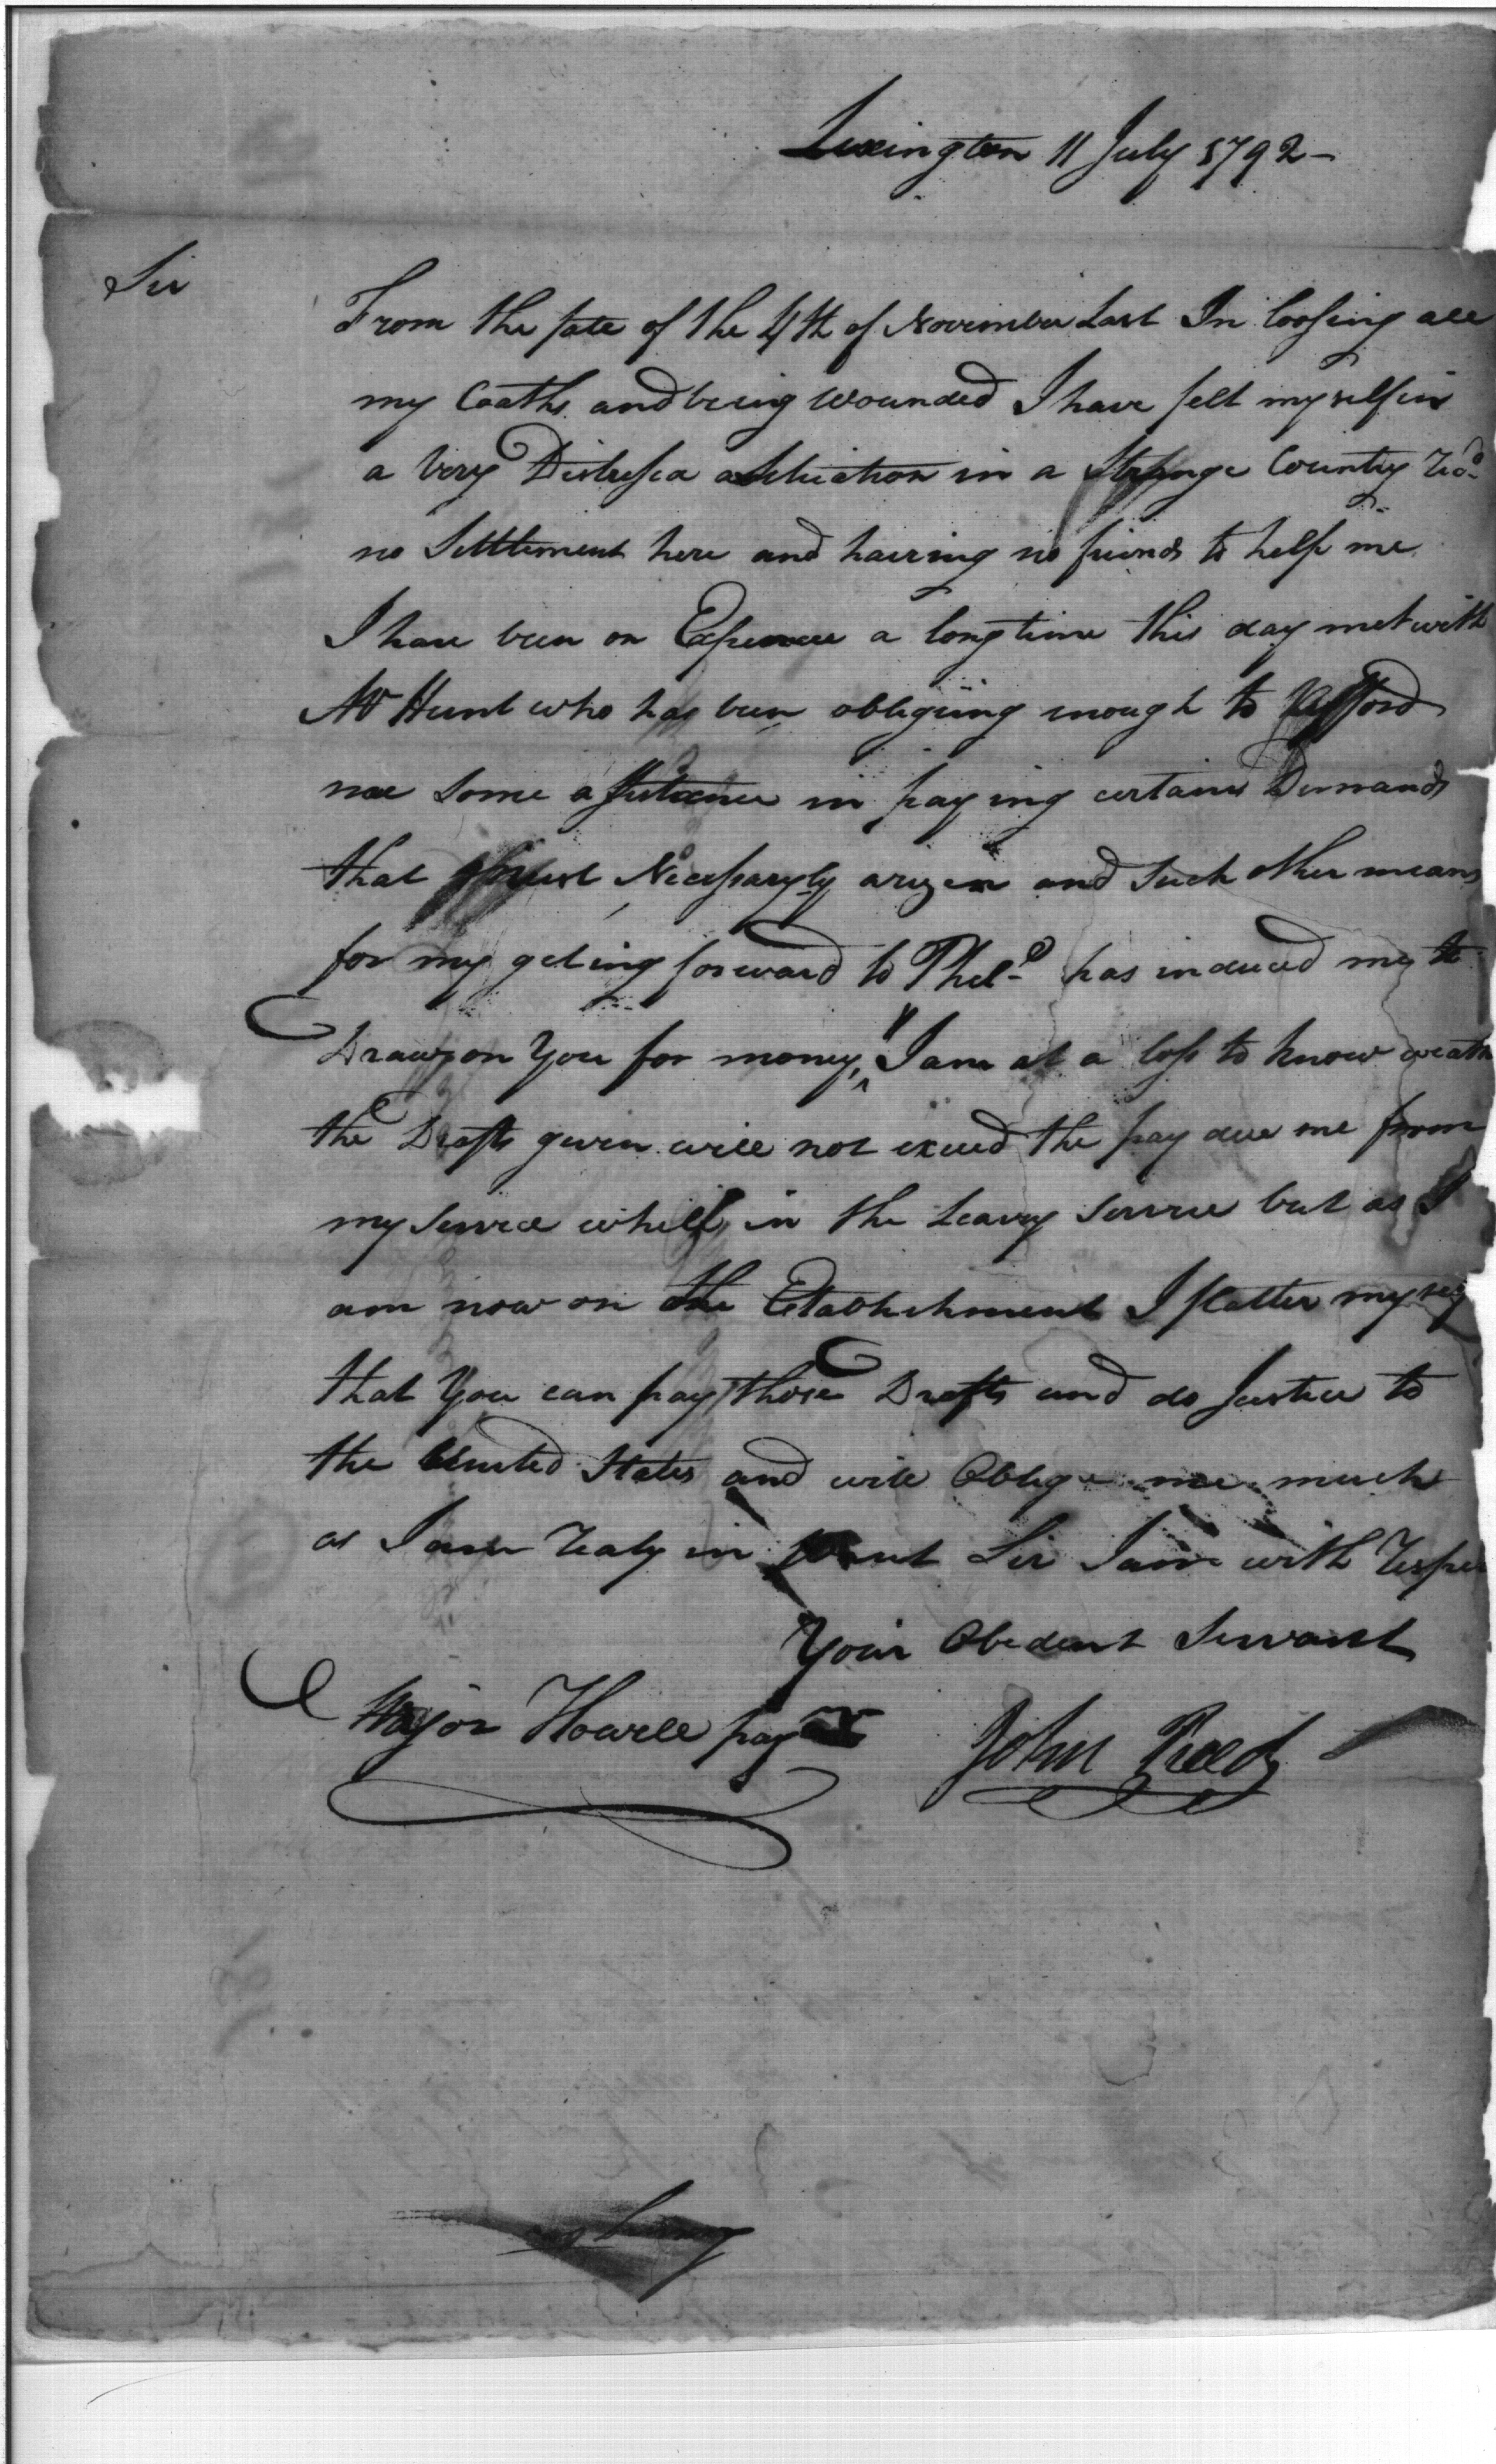 Lexington 11 July 1792 -
Sir
From the fate of the 4th of November Last In loosing all
my Coaths and being wounded I have felt myself in
a Very Distressd asituation in a Strange Country Recd
no Settlement here and having no friends to help me
I have been on Expence a long time this day met with
Mr Hunt who has been obligiing enough to Afford
me some assistance in paying certains Demands
that must Necessaryly arizen and such other means
for my geting forward to Phila has induced me to
Draw on You for money, I am at a loss to know
the Drafts given will not exceed the pay due me from
my service whilst in the Leavy Service but as I
am now on the Establishment I flatter my self
that You can pay those Drafts and do Justice to
the United States and will Oblige me much
as I am Realy in want Sir I am with Respe
Your Obedent Servant
Major Howell pay Mr John Reed